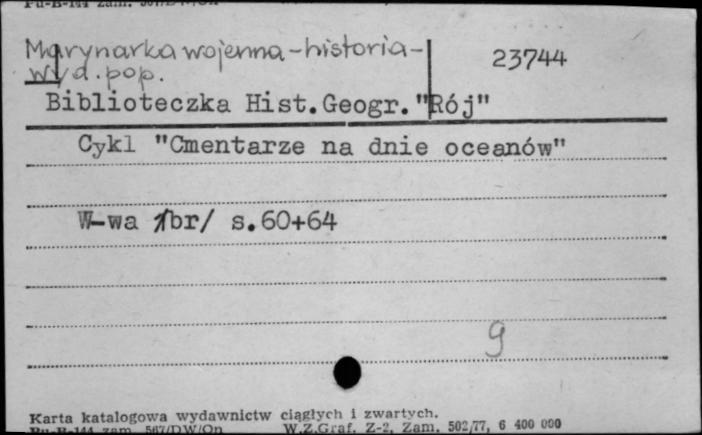 Marynarka wojenna - historia -
wyd. pop.
23744
Biblioteczka Hist.Geogr."Rój"
Cykl "Cmentarze na dnie oceanów"
W-wa /br/ s.60+64
9
Karta katalogowa wydawnictw ciągłych i zwartych.
Pu-B-144 zam. 567/DW/On W.Z.Graf. Z-2, Zam. 502/77, 6 400 000